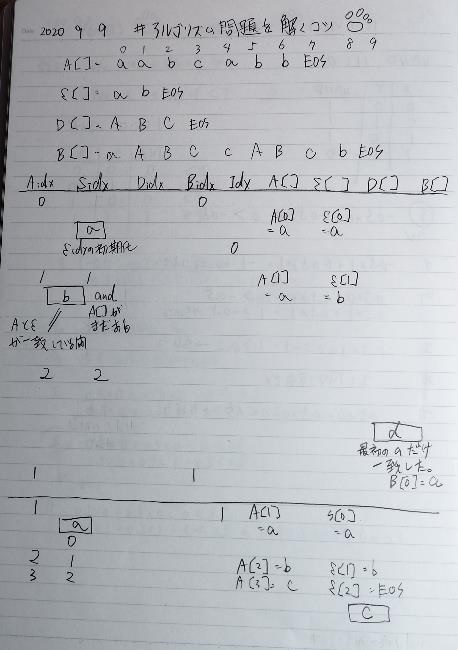 2020 9 9 #アルゴリズム問題を解くコツ
0 1 2 3 4 5 6 7 8 9
A[]= a a b c a b b EOS
S[]= a b EOS
D[]= A B C EOS
B[]= a A B C c A B c b EOS
Aidx Sidx Didx Bidx Idx A[] S[] D[] B[]
0 0
a A[0] S[0]
=a =a
Sidxの初期化 0
1 1 A[1] S[1]
b and =a =b
A[]が
AとS まだある
が一致している間
2 2
d
最初のaだけ
一致した。
1 1 B[0]=a
1 1 A[1] S[0]
a =a =a
0
2 1 A[2]=b S[1]=b
3 2 A[3]=c S[2]=EOS
C